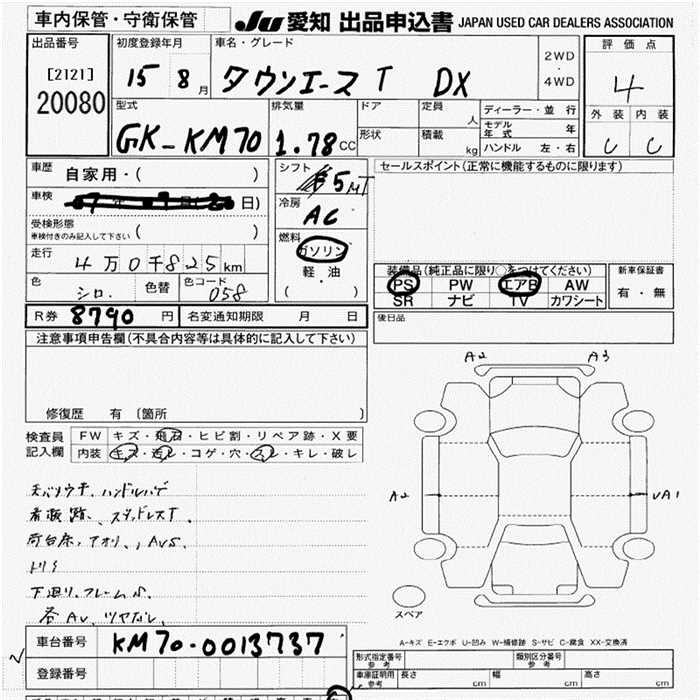 車内保管・守衛保管
JU 愛知 出品申込書 JAPAN USED CAR DEALERS ASSOCIATION
出品番号
[2121]
20080
初度登録年月
15 8月
車名・グレード
タウンエース T DX
2WD
・
4WD
評価点
4
外装 内装
C C
型式
GK-KM70
排気量
1.78 CC
ドア
形状
定員 人
積載 kg
ディーラー・並行
モデル年式 年
ハンドル 左・右
車歴 自家用・( )
車検
受検形態
車検付きのみ記入して下さい ( )
走行 4万0千825km
色 シロ. 色替 色コード 058
シフト 5MT
冷房 AC
燃料
ガソリン
軽・油
( )
セールスポイント(正常に機能するものに限ります)
装備品(純正品に限り○をつけてください)
PS PW エアB AW
SR ナビ TV カワシート
新車保証書
有・無
後日品
R券 8790円 名変通知期限 月 日
注意事項申告欄(不具合内容等は具体的に記入して下さい)
修復歴 有 〔箇所 〕
検査員
記入欄
FW キズ・飛石・ヒビ割・リペア跡・X要
内装 キズ・汚レ・コゲ・穴・スレ・キレ・破レ
ハンドルハゲ
看板跡、スタッドレスT
荷台床、アオリ、AVS
下廻り、フレームS
各AU、ツヤなし
A2
A3
A2
UA1
スペア
A-キズ E-エクボ U-凹み W-補修跡 S-サビ C-腐食 XX-交換済
車台番号 KM70-0013737
登録番号
形式指定番号
参考
類別区分番号
参考
車庫証明用
参考
長さ cm 幅 cm 高さ cm